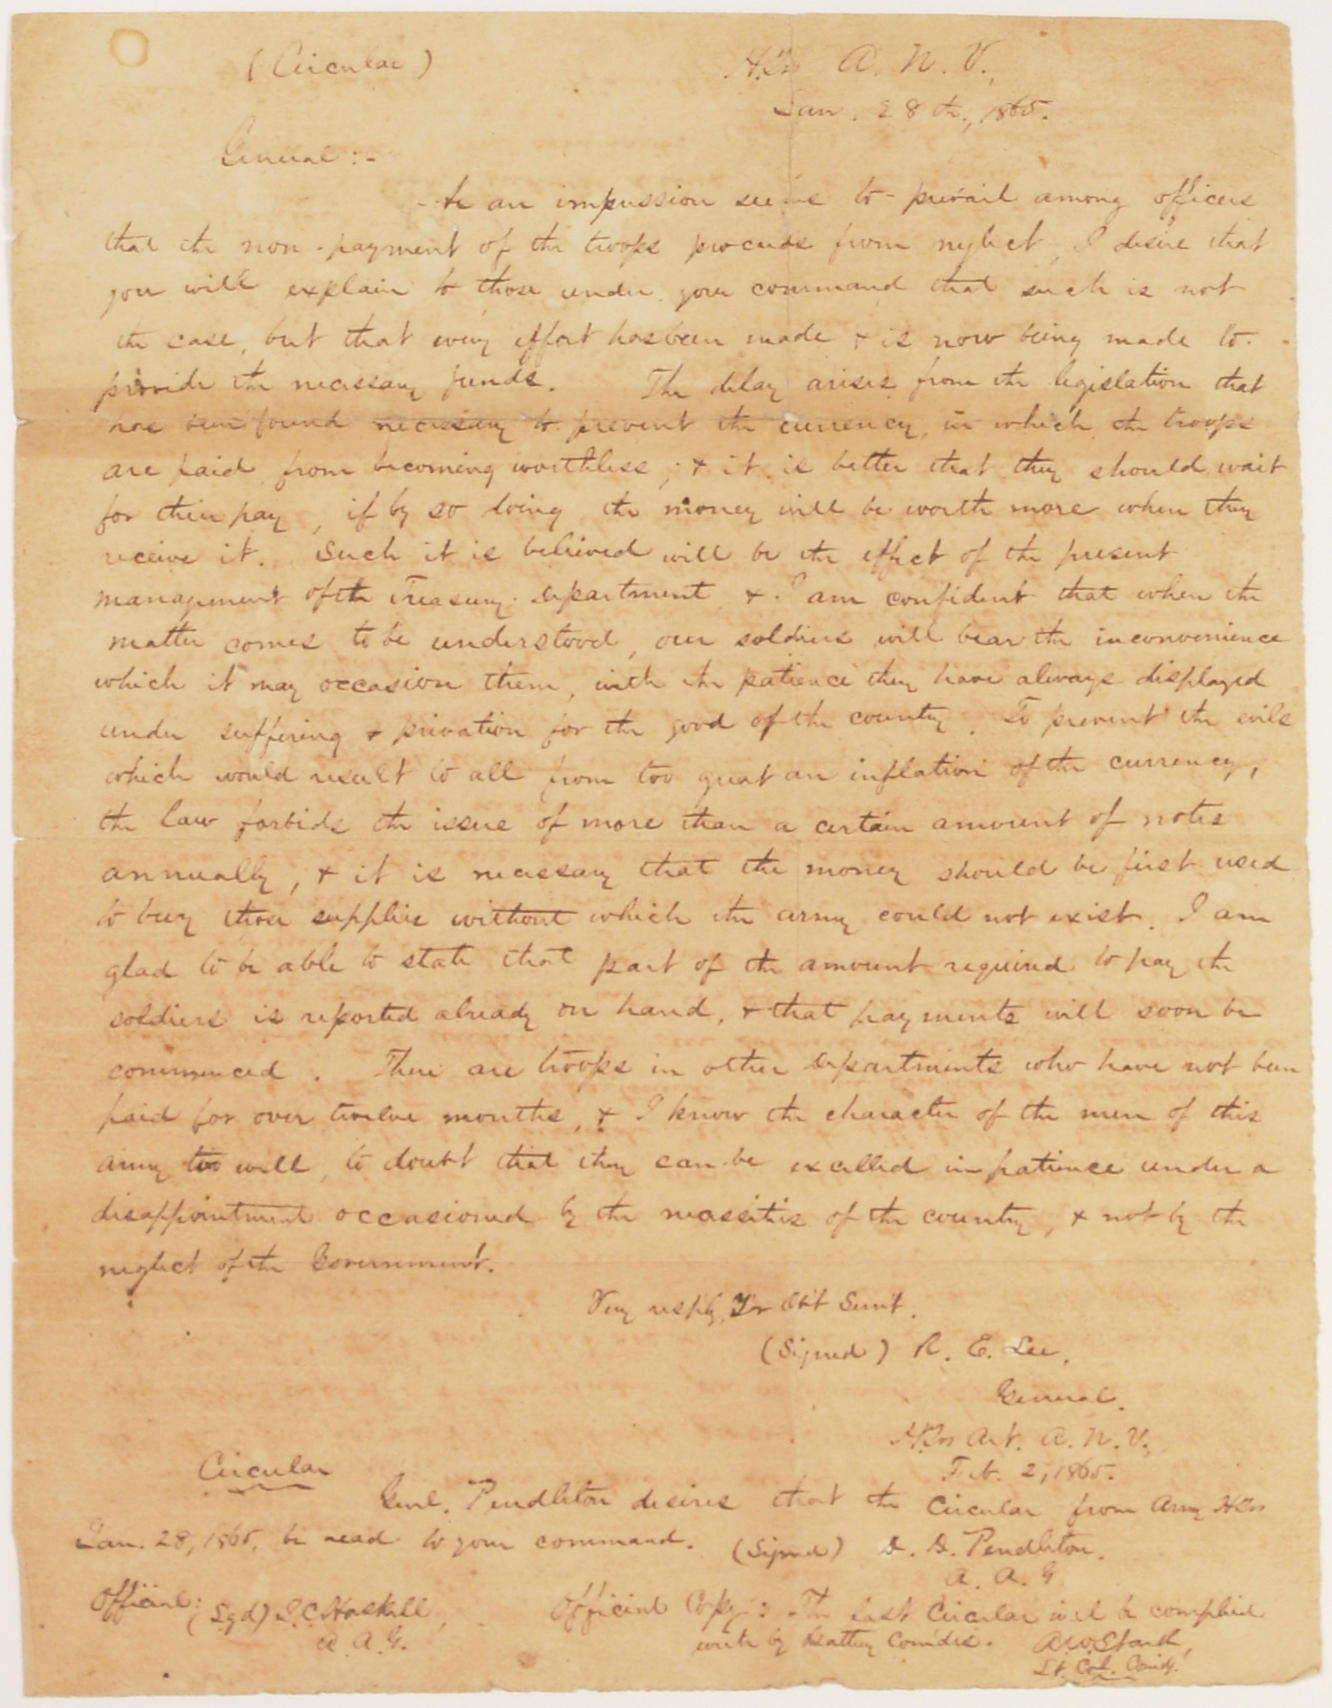 (Circular) H.Qrs A. N. V.,
Jan. 28th., 1865.
General :-
As an impression seems to prevail among officers
that the non-payment of the troops proceeds from neglect, I desire that
you will explain to those under your command that such is not
the case, but that every effort has been made & is now being made to
provide the necessary funds. The delay arises from the legislation that
has been found necessary to prevent the currency, in which the troops
are paid from becoming worthless; & it is better that they should wait
for their pay, if by so doing the money will be worth more when they
receive it. Such it is believed will be the effect of the present
management of the Treasury Department, & I am confident that when the
matter comes to be understood, our soldiers will bear the inconvenience
which it may occasion them, with the patience they have always displayed
under suffering & privation for the good of the country. To prevent the evils
which would result to all from too great an inflation of the currency,
the law forbids the issue of more than a certain amount of notes
annually, & it is necessary that the money should be first used
to buy those supplies without which the army could not exist. I am
glad to be able to state that part of the amount required to pay the
soldiers is reported already on hand, & that payments will soon be
commenced. There are troops in other Departments who have not been
paid for over twelve months, & I know the character of the men of this
army too well, to doubt that they can be excelled in patience under a
disappointment occasioned by the necessities of the country, & not by the
neglect of the Government.
Very resply, Yr Obt Servt.
(Signed) R. E. Lee,
General.
H.Qrs Art. A. N. V.,
Circular Feb. 2, 1865.
Genl. Pendleton desires that the Circular from Army HQrs
Jan. 28, 1865, be read to your command. (Signed) D. D. Pendleton.
A. A. G
Official: (Sgd) J. C. Haskell, Official Copy: The last Circular will be complied
A. A. G. with by Battery Comdrs.
Lt. Col. Comdg.